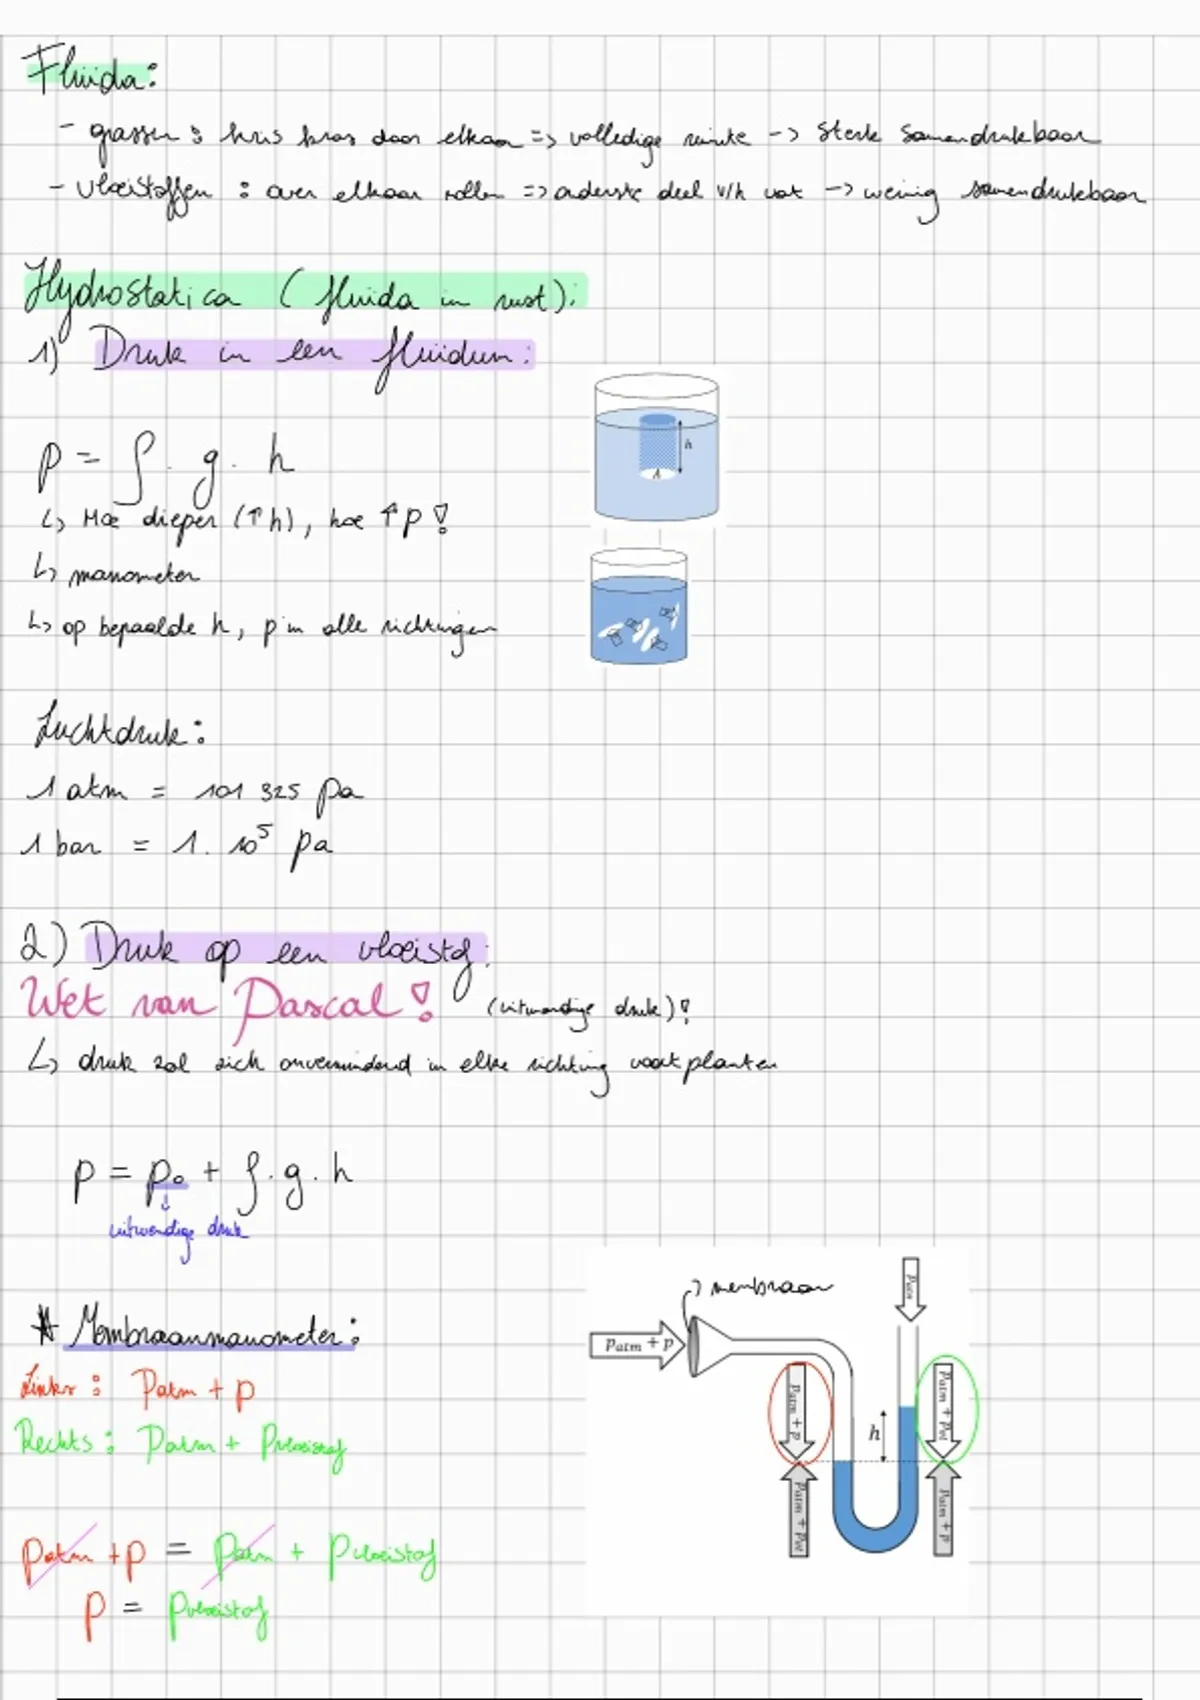 Fluïda:
- grassen : kris kras door elkaar => volledige ruimte -> sterk samendrukbaar
- vloeistoffen : over elkaar rollen => onderste deel v/h vat -> weinig samendrukbaar
Hydrostatica (fluida in rust):
1) Druk in een fluïdum:
h
A
p = ρ . g . h
↳ Hoe dieper (↑h), hoe ↑p !
↳ manometer
↳ op bepaalde h, p in alle richtingen
Luchtdruk:
1 atm = 101 325 pa
1 bar = 1. 10⁵ pa
2) Druk op een vloeistof:
Wet van Pascal ! (uitwendige druk) !
↳ druk zal zich onverminderd in elke richting voortplanten
p = p₀ + ρ . g . h
↓
uitwendige druk
-> membraan
Patm
Patm + p
* Membraanmanometer:
Links : Patm + p
Rechts : Patm + Pvloeistof
Patm + p
Patm + Pvl
h
Patm + Pvl
Patm + p
patm + p = patm + pvloeistof
p = pvloeistof